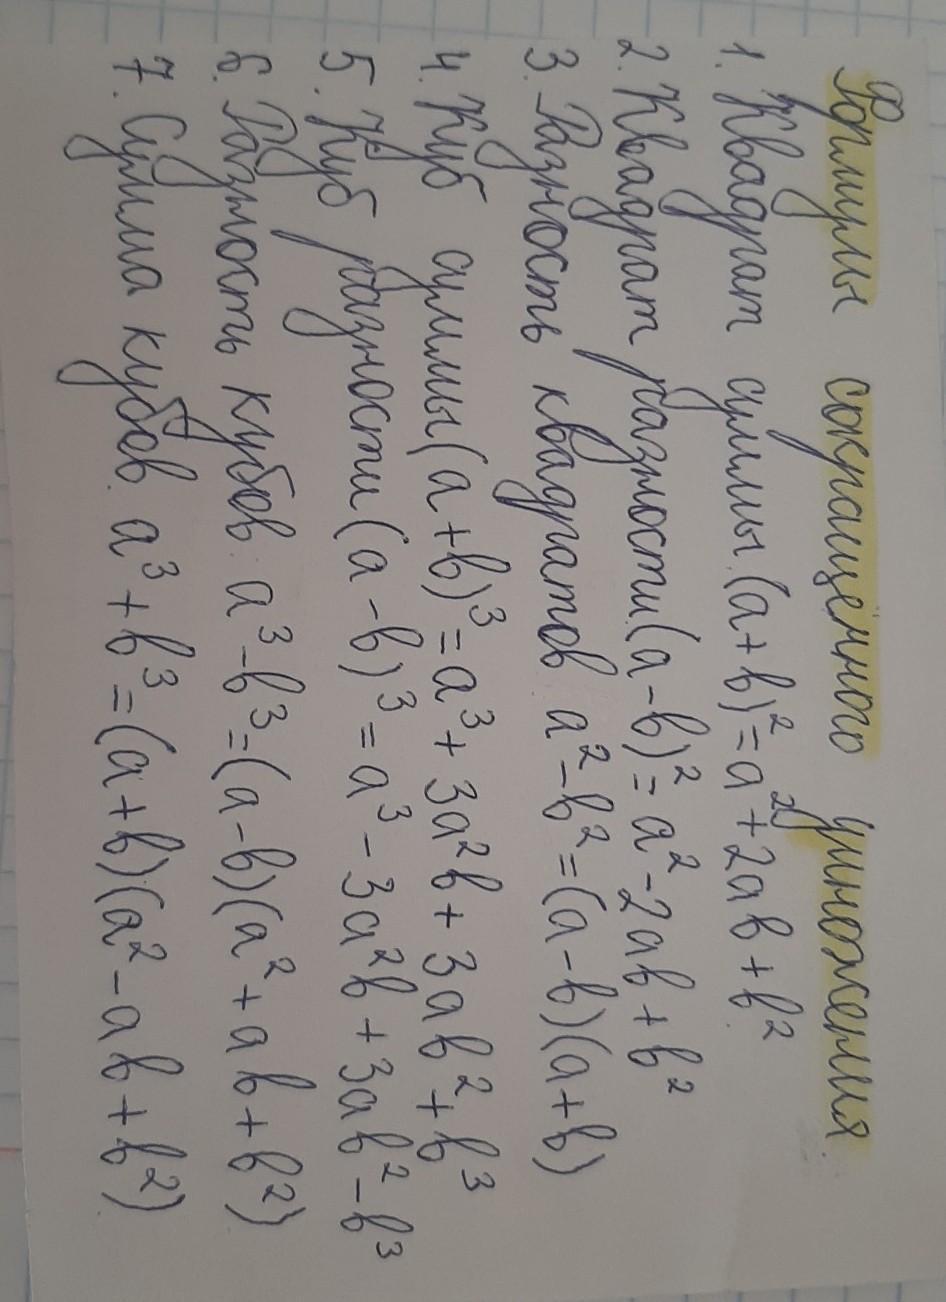 Формулы сокращённого умножения
1. Квадрат суммы (a+b)²=a²+2ab+b²
2. Квадрат разности (a-b)²=a²-2ab+b²
3. Разность квадратов a²-b²=(a-b)(a+b)
4. Куб суммы (a+b)³=a³+3a²b+3ab²+b³
5. Куб разности (a-b)³=a³-3a²b+3ab²-b³
6. Разность кубов a³-b³=(a-b)(a²+ab+b²)
7. Сумма кубов a³+b³=(a+b)(a²-ab+b²)